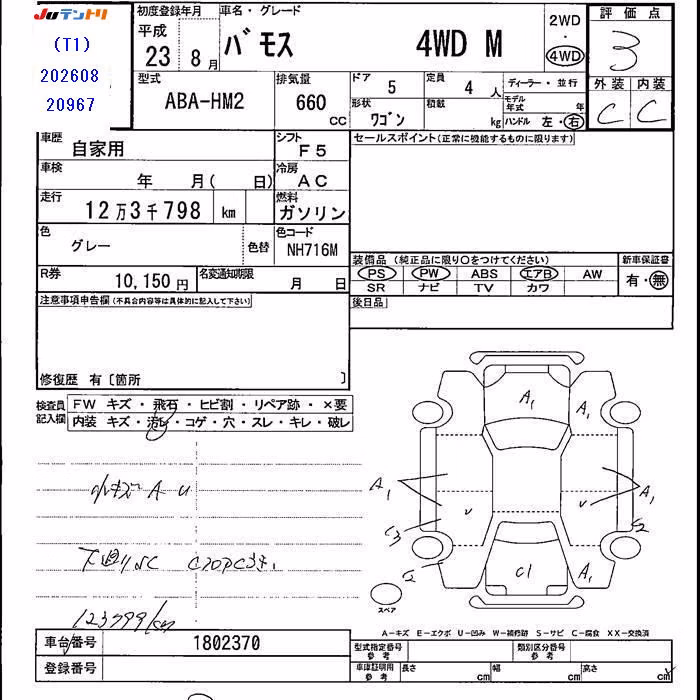 JUテントリ
(T1)
202608
20967
初度登録年月
平成
23 8月
車名・グレード
バモス 4WD M
2WD
・
4WD
評価点
3
外装 内装
C C
型式
ABA-HM2
排気量
660
CC
ドア 5
定員 4 人
ディーラー・並行
形状 ワゴン
積載 kg
モデル年式 年
ハンドル 左・右
車歴 自家用
シフト F5
セールスポイント(正常に機能するものに限ります)
車検 年 月( 日)
冷房 AC
走行 12万3千798 km
燃料 ガソリン
色 グレー
色替
色コード NH716M
装備品 (純正品に限り○をつけてください)
新車保証書
PS PW ABS エアB AW
有・無
SR ナビ TV カワ
R券 10,150円
名変通知期限 月 日
後日品
注意事項申告欄(不具合内容等は具体的に記入して下さい)
修復歴 有〔箇所 〕
検査員記入欄
FW キズ・飛石・ヒビ割・リペア跡・×要
内装 キズ・汚レ・コゲ・穴・スレ・キレ・破レ
小キズ A U
下廻りSC
123799/km
A1
A1
A1
A1
U
U
S3
S2
S
C1
A1
スペア
A-キズ E-エクボ U-凹み W-補修跡 S-サビ C-腐食 XX-交換済
車台番号 1802370
登録番号
型式指定番号 参考
類別区分番号 参考
車庫証明用 参考
長さ cm
幅 cm
高さ cm